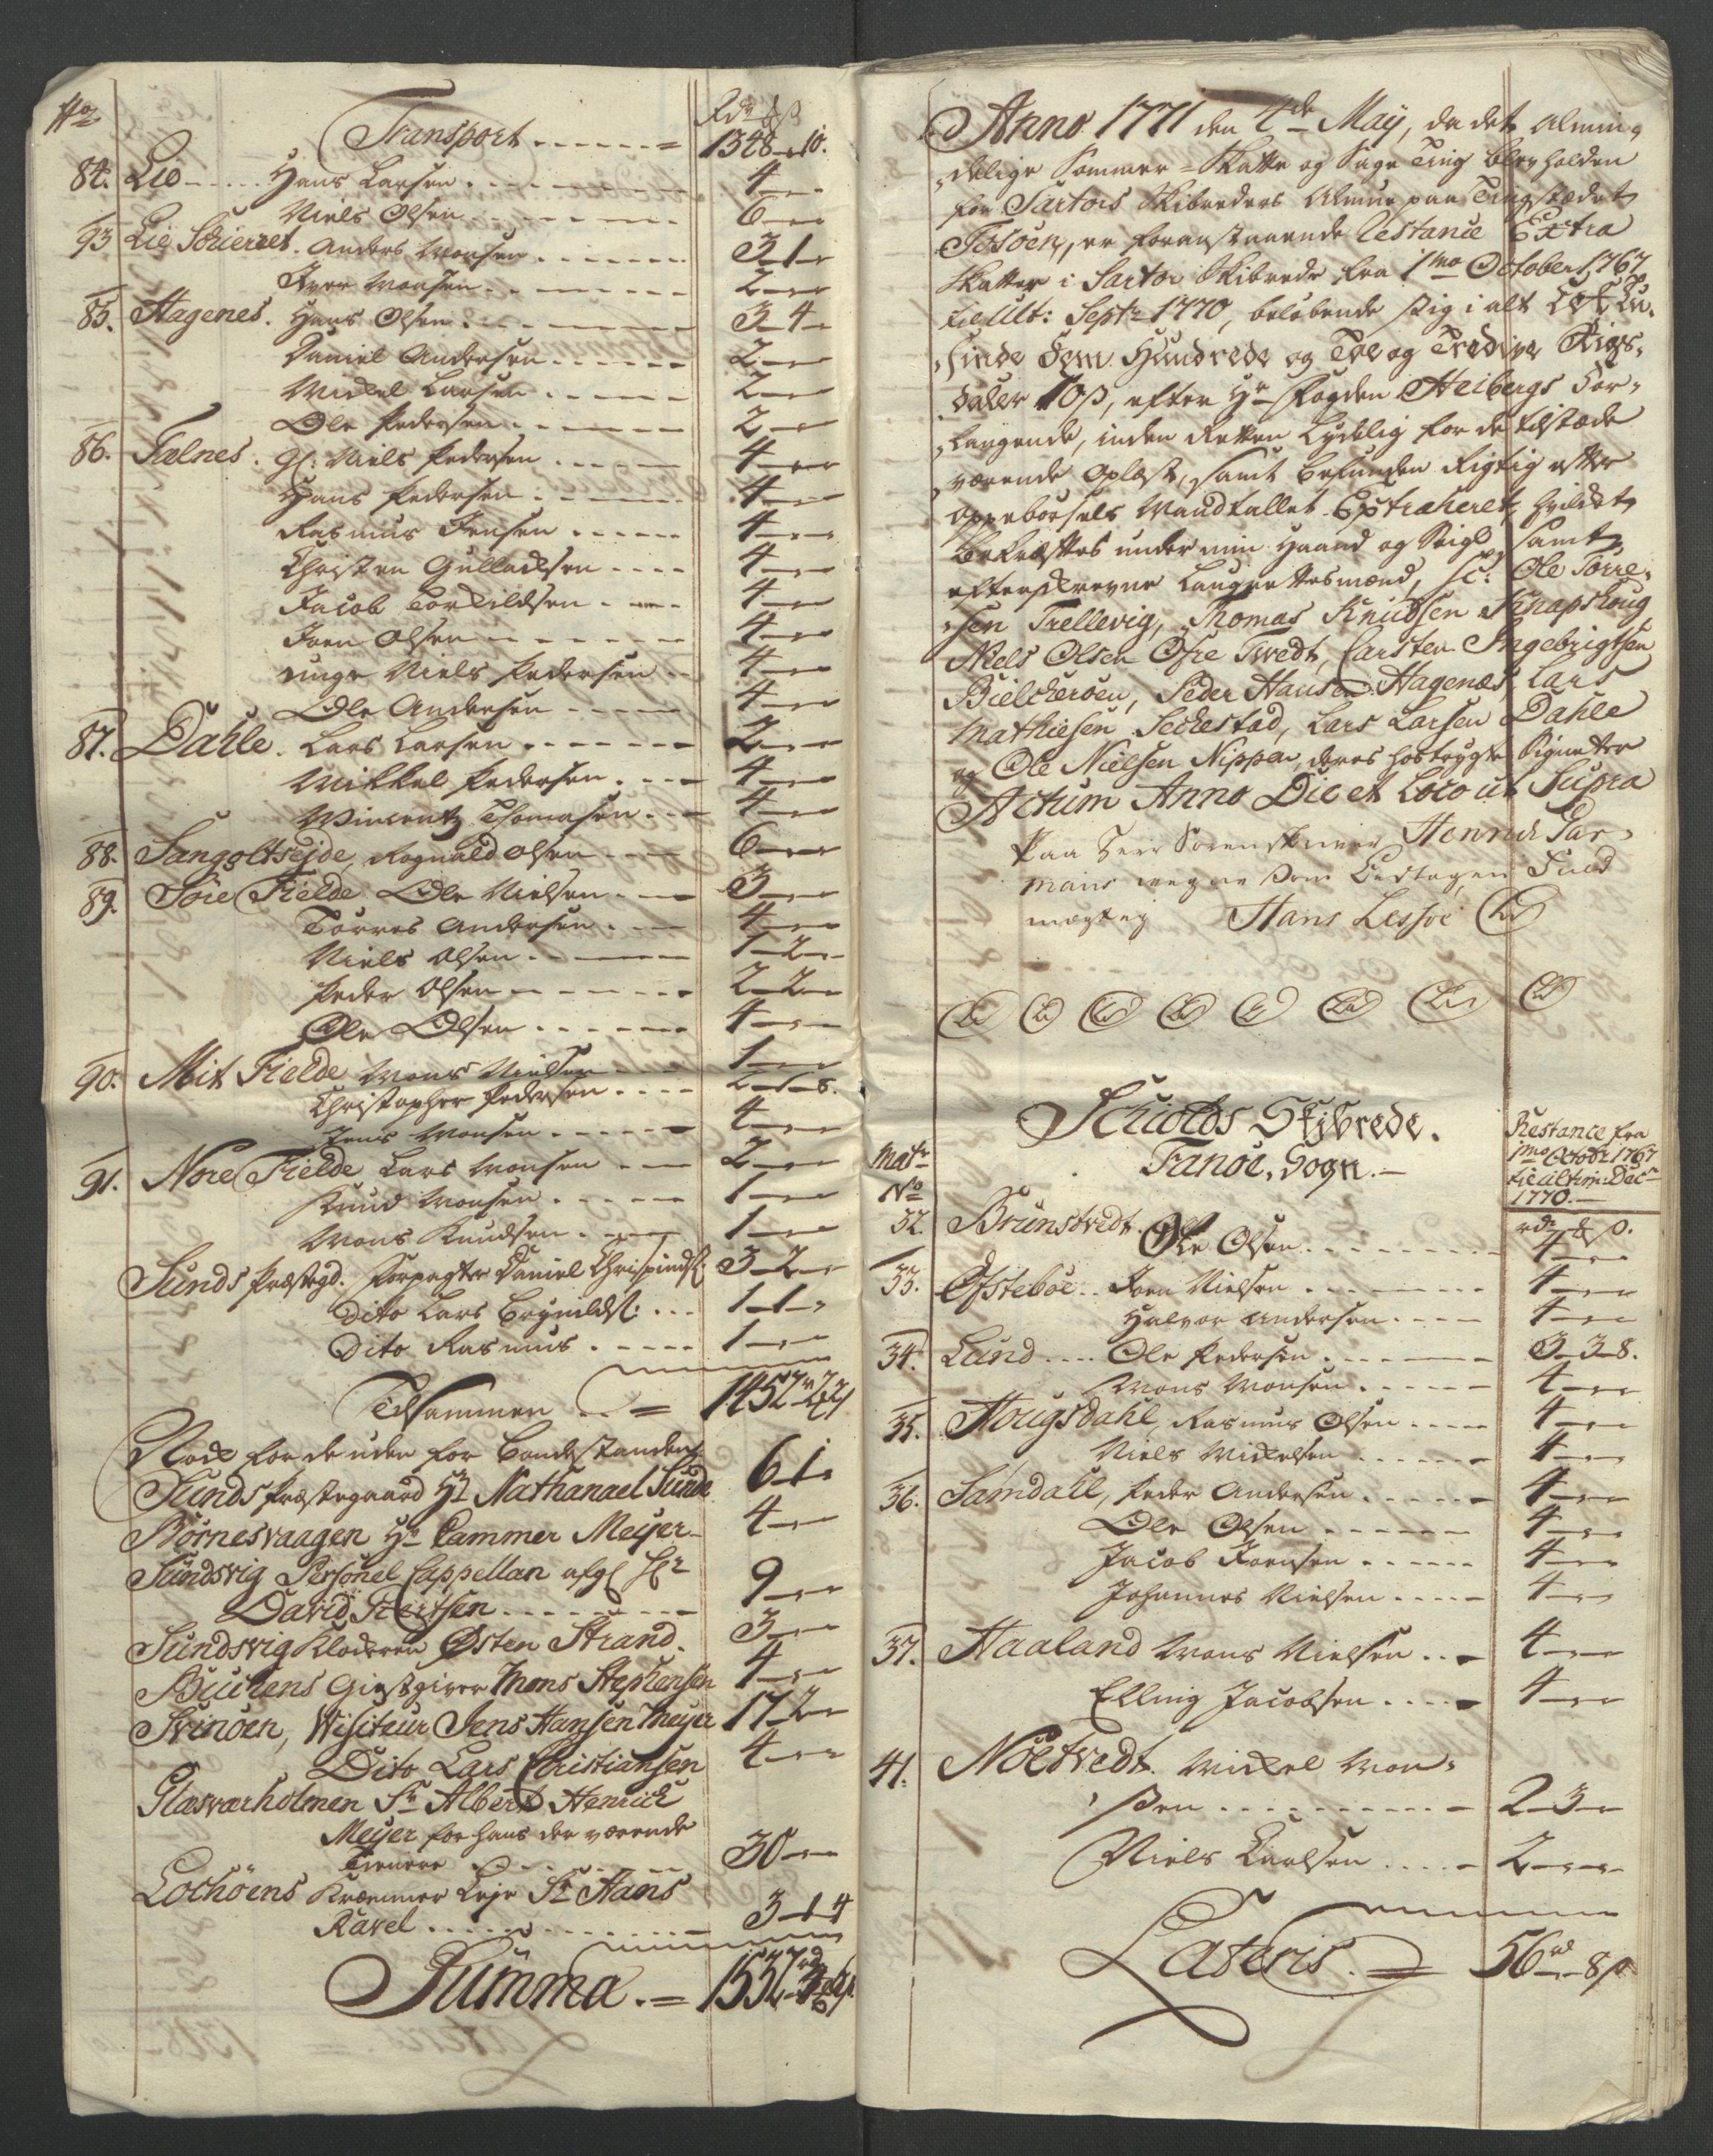 No
Rdr
Transport ...... = 1348 " 10.
84. Lie ... Hans Larsen ... 4 - " -
Niels Olsen ... 6 - " -
93 Lie Skierret. Anders Monsen ... 3 - 1 -
Iver Monsen ... 2 - " -
85. Hagenes. Hans Olsen ... 3 - 4 -
Daniel Andersen ... 2 - " -
Michel Larsen ... 2 - " -
Ole Pedersen ... 2 - " -
86. Tælnes. Gl: Niels Pedersen ... 4 - " -
Hans Pedersen ... 4 - " -
Rasmus Jensen ... 4 - " -
Christen Gulladsen ... 4 - " -
Jacob Torkildsen ... 4 - " -
Joen Olsen ... 4 - " -
unge Niels Pedersen ... 4 - " -
Ole Andersen ... 4 - " -
87. Dahle. Lars Larsen ... 2 - " -
Mikkel Pedersen ... 4 - " -
Wincentz Thomasen ... 4 - " -
88. Sangoltsejde, Rognald Olsen ... 6 - " -
89. Søre Fielde Ole Nielsen ... 3 - " -
Torres Andersen ... 4 - " -
Niels Olsen ... 1 - 2 -
Peder Olsen ... 2 - 2 -
Ole Olsen ... 4 - " -
90. Mit Fielde Mons Nielsen ... 1 - " -
Christopher Pedersen ... 2 - 1 - 8.
Jens Monsen ... 4 - " -
91. Nore Fielde Lars Monsen ... 2 - " -
Knud Monsen ... 1 - " -
Mons Knudsen ... 1 - " -
Sunds Præstegd. Forpagter Daniel Chrispinds: 3 - 2 -
Dito Lars Brynilds: ... 1 - 1 -
Dito Rasmus ... 1 - " -
Tilsammen .. = 1452
Nock for de uden for Bondestanden
Sunds Præstegaard Hr Nathanael Sunde 6 - 1 -
Børnesvaagen Hr Cammer Meyer 4 - " -
Sundsvig Personel Cappellan afg Hr
David Giertsen ... 9 - " -
Sundsvig Klocheren Østen Strand. 3 - " -
Buchens Giestgiver Mons Stephensen 4 - " -
Svinøen, Wisiteur Jens Hansen Meyer 17 - 2 -
Dito Lars Christiansen 4 - " -
Glæsværholmen Sr Albert Henrich
Meyer for hans der værende
Tienere ... 30 - " -
Lochøens Kræmmer Leje Sr Hans
Ravel ... 3 - 1 - 4
Summa . = 1532
Anno 1771 den 4de May, da det Almin-
delige Sommer = Skatte og Sage Ting blev holden
for Sartors Skibreders Almue paa Tingstædet
Tøsøen, er foranstaaende Restance Extra
Skatter i Sartor Skibrede fra 1mo October 1767
til Ult: Septr 1770, beløbende sig i alt Eet Tu-
sinde Fem Hundrede og Toe og Tredive Rigs-
daler 10 s, efter Hr Fogden Heibergs For-
langende, inden Retten Lydelig for de tilstæde
værende Oplæst, samt befunden Rigtig efter
Oppebørsels Mandtallet Extraheret, hvilket
bekræftes under min Haand og Seigl samt
efterskrevne Laugrettesmænd, sc: Ole Torre-
sen Trellevig, Thomas Knudsen Knapskoug
Niels Olsen Øfre Tvedt, Carsten Ingebrigtsen
Bielcherøen, Peder Hansen Hagenæs, Lars
Mathiesen Seckestad, Lars Larsen Dahle
og Ole Nielsen Nippen, deres hostrygte Signeter
Actum Anno Die et Loco ut Supra
Paa Herr Sorenskriver Henrich Far-
mans vegne som Eedtagen Fuld
mægtig Hans Lessøe
Schiolds Skibrede.
Fanøe, Sogn. -
Restance fra
1mo Octobr 1767
til ultim: Decr
1770. -
Matr
No
rdr
32. Brunstvedt. Ole Olsen ... 4 - " -
33. Ofstebøe .. Joen Nielsen ... 4 - " -
Halvor Andersen ... 4 - " -
34. Lund .... Ole Pedersen ... 3 - 3 - 8.
Mons Monsen ... 4 - " -
35. Hougsdahl, Rasmus Olsen ... 4 - " -
Niels Mickelsen ... 4 - " -
36. Samdahl, Peder Andersen ... 4 - " -
Ole Olsen ... 4 - " -
Jacob Joensen ... 4 - " -
Johannes Nielsen ... 4 - " -
37. Haaland Mons Nielsen ... 4 - " -
Elling Jacobsen ... 4 - " -
41. Nøetvedt. Mickel Mon-
sen ... 2 - 3 -
Niels Carlsen ... 2 - " -
Lateris. = 56 rd - " - 8 s